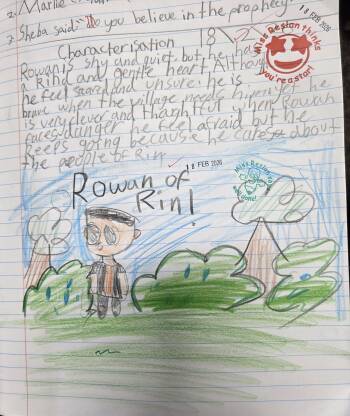 2. Marlie
2. Sheba said: "Do you believe in the prophecy
Characterisation 18/2
Rowan is shy and quiet, but he has
a kind and gentle heart. Althou
he feel scared and unsure, he is
brave when the village needs him he
is very clever and thoughtful when Rowan
faces danger he feel afraid but he
keeps going because he cares about
the people of Rin
18 FEB 2026
Miss Bestan thinks
you're a star!
18 FEB 2026
Rowan of
Rin!